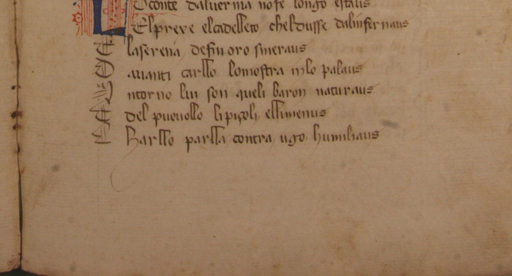 conte daluerna nose longo estaus
El preve elcadelleto chel dusse dalinfernaus
laserena desinoro sineraus
auanti carllo lomostra inlo palaus
ntorno lui son queli baron naturaus
del puouollo li piçoli ellimenus
harllo parlla contra ugo humiliaus